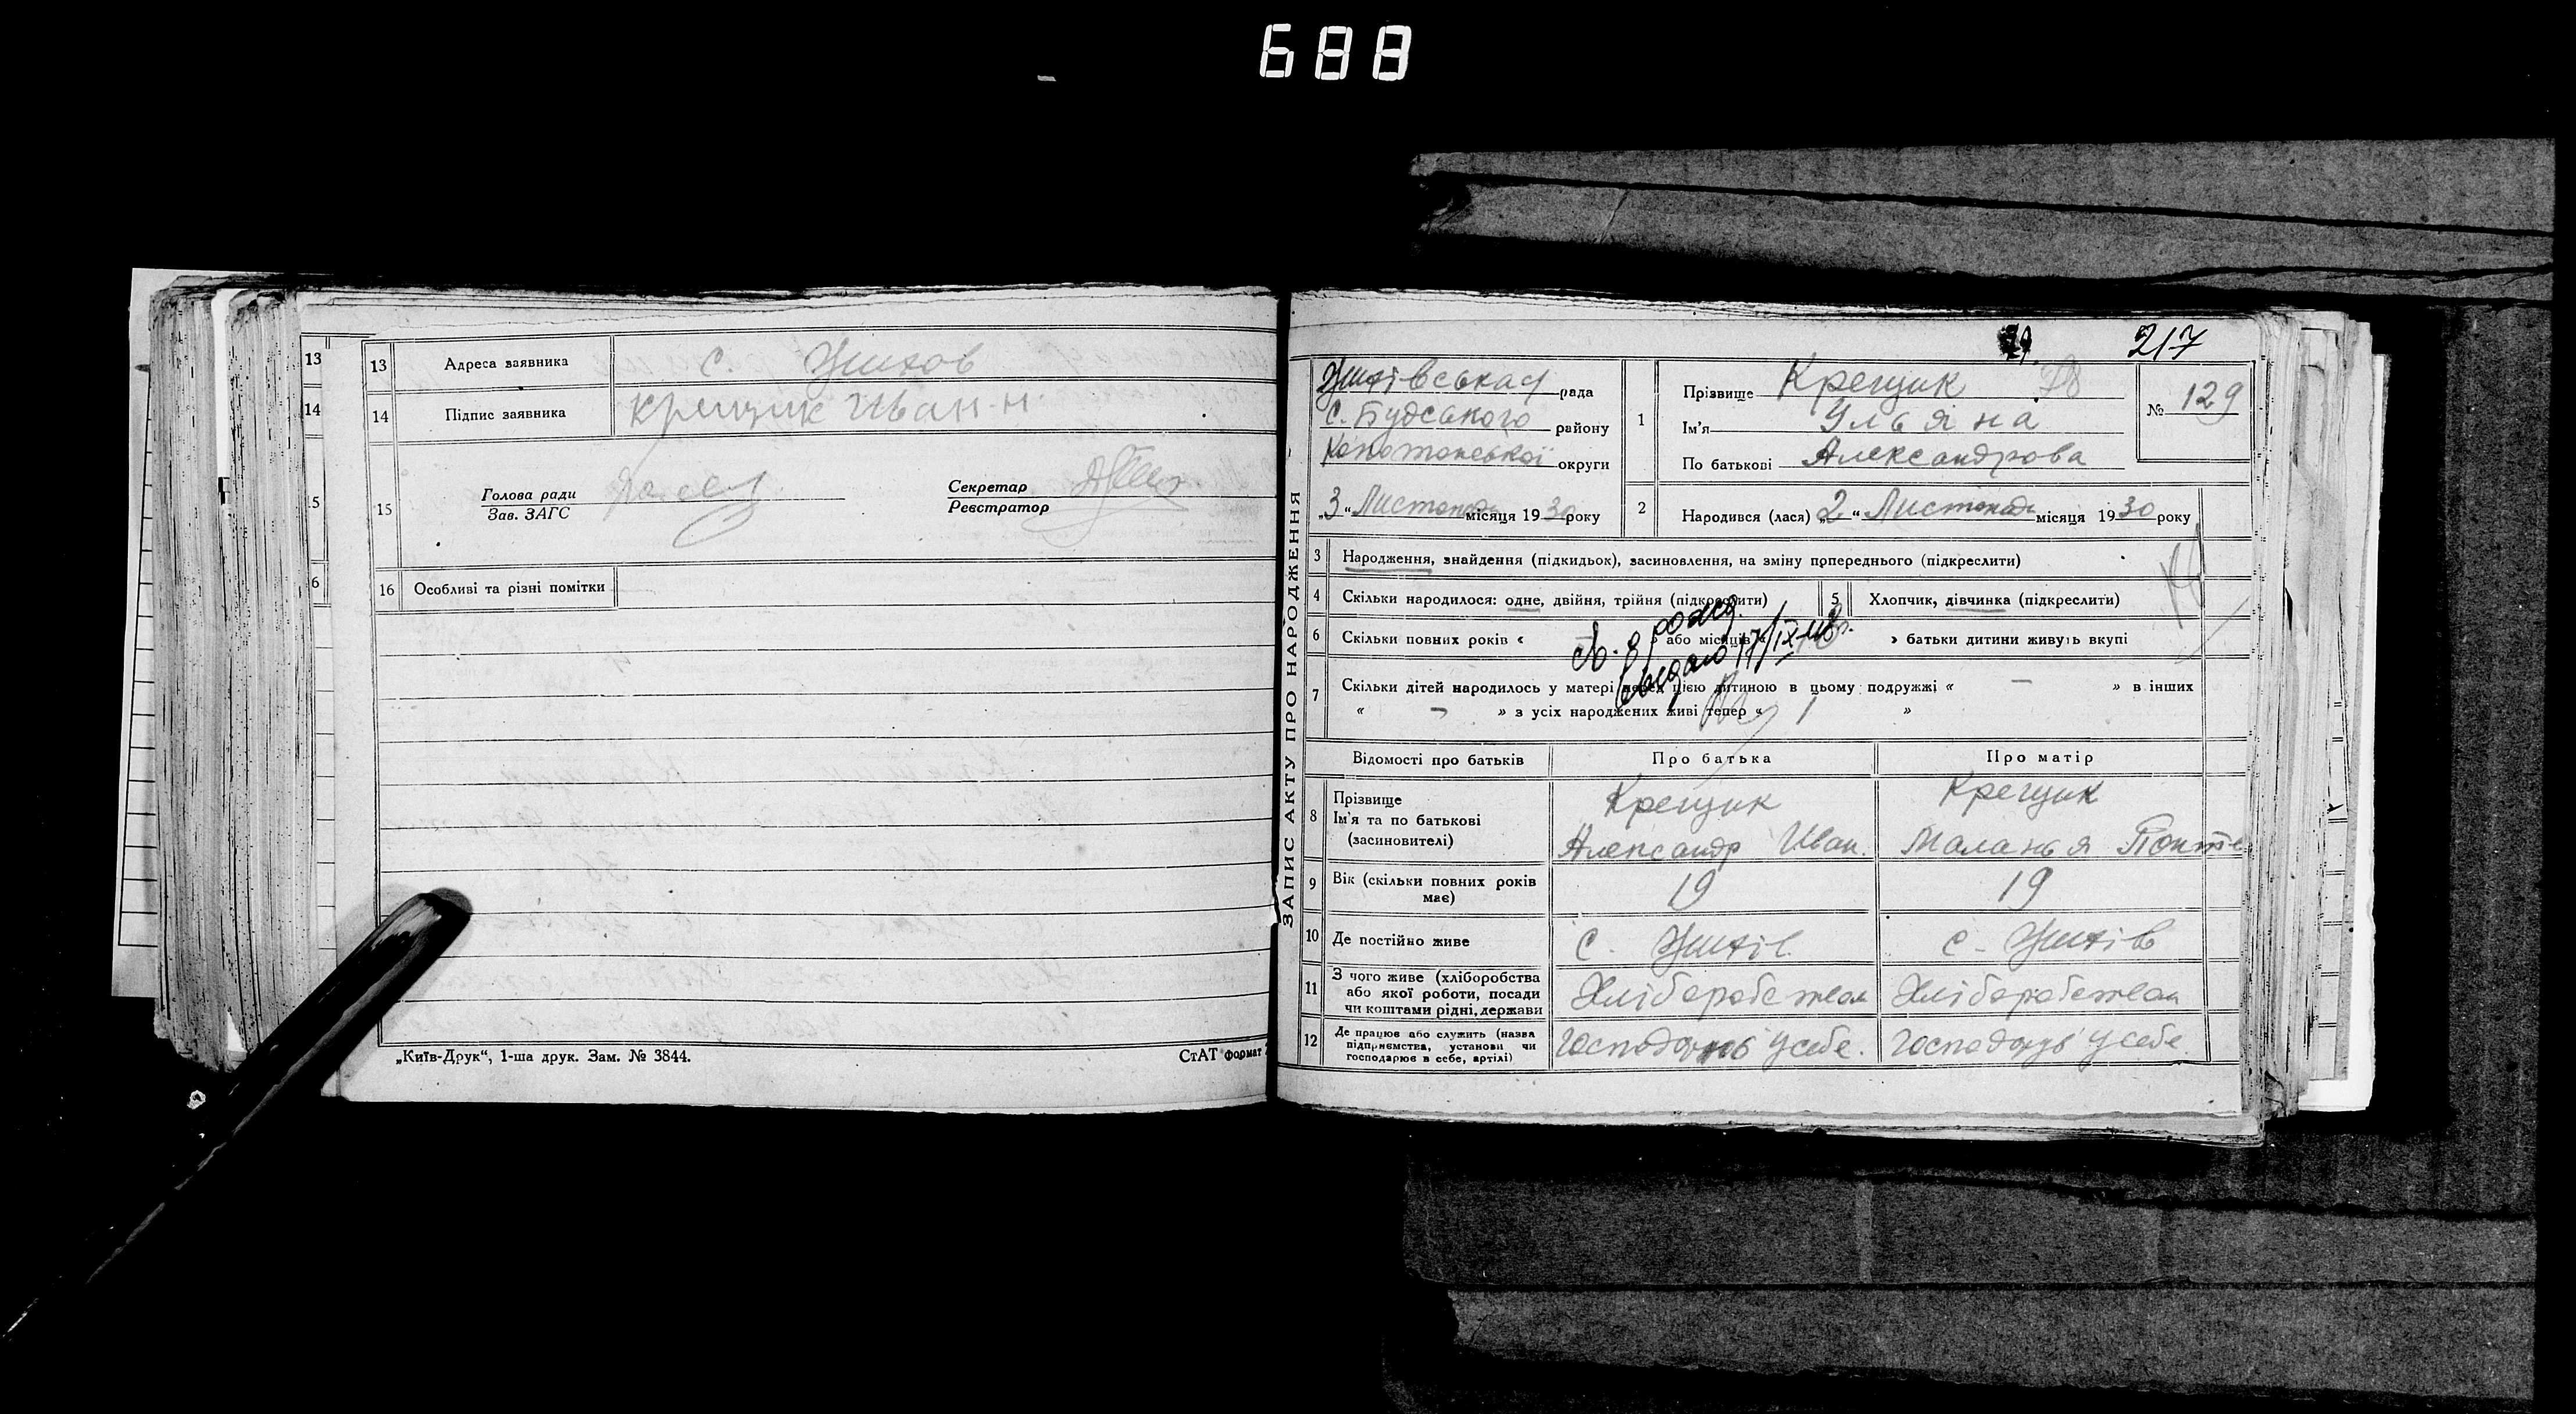 688
13 Адреса заявника с. Жихов
14 Підпис заявника Крещик Иван. н.
15 Голова ради
Зав. ЗАГС
Секретар
Реєстратор
16 Особливі та різні помітки
„Київ-Друк“, 1-ша друк. Зам. № 3844.
СтАТ формат
13
14
15
16
217
ЗАПИС АКТУ ПРО НАРОДЖЕННЯ
Жихівська рада
С. Будського району
Конотопської округи
„3“ Листопад місяця 1930 року
1 Прізвище Крещик
Ім'я Ульяна
По батькові Александрова
№ 129
2 Народився (лася) „2“ Листопад місяця 1930 року
3 Народження, знайдення (підкидьок), засиновлення, на зміну попереднього (підкреслити)
4 Скільки народилося: одне, двійня, трійня (підкреслити)
5 Хлопчик, дівчинка (підкреслити)
6 Скільки повних років « – » або місяців « » батьки дитини живуть вкупі
выдано 17/IX-48г.
7 Скільки дітей народилось у матері перед цією дитиною в цьому подружжі « – » в інших
« – » з усіх народжених живі тепер « 1 »
Відомості про батьків Про батька Про матір
8 Прізвище
Ім'я та по батькові
(засиновителі)
Крещик
Александр Иван.
Крещик
Маланья
9 Вік (скільки повних років має) 19 19
10 Де постійно живе с. Жихів с. Жихів
11 З чого живе (хліборобства
або якої роботи, посади
чи коштами рідні, держави
Хліборобством Хліборобством
12 Де працює або служить (назва
підприємства, установи чи
господарює в себе, артілі)
Господарює у себе. Господарує у себе